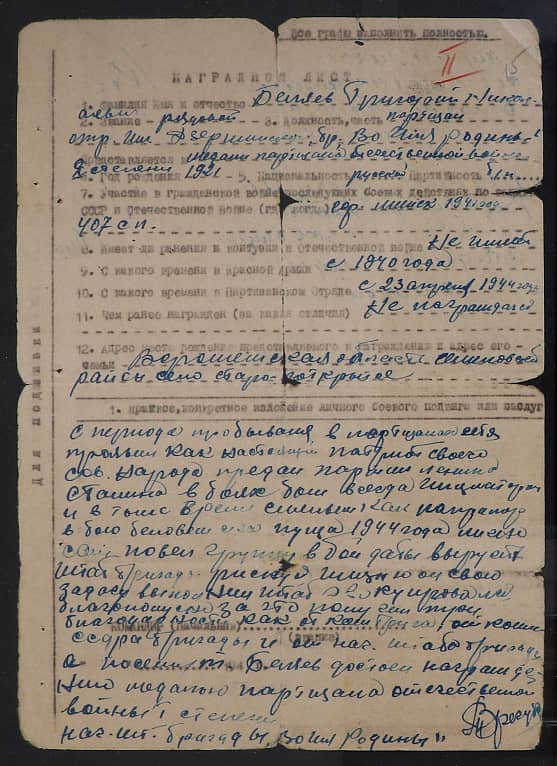 Все графы заполнить полностью.
II 15
НАГРАДНОЙ ЛИСТ
1. Фамилия Имя и отчество Беляев Григорий Никол-
аевич
2. Звание рядовой 3. Должность, часть партизан
отр. им. Дзержинского бр. "Во Имя Родины"
Представляется к медали партизан отечественной войны
2 степени
4. Год рождения 1921 5. Национальность русский 6. Партийность б/п.
7. Участие в гражданской войне, последующих боевых действиях по защите
СССР и Отечественной войне (где, когда) гор. Минск 1941 год
407 с п.
8. Имеет ли ранения и контузии в Отечественной войне Не имеет
9. С какого времени в Красной Армии с 1940 года
10. С какого времени в Партизанском Отряде с 23 апреля 1944 года
11. Чем ранее награжден (за какие отличия) Не награждался
12. Адрес место рождение представляемого к награждению и адрес его
семьи
района село Старо-
Для подшивки
1. Краткое, конкретное изложение личного боевого подвига или заслуг
С периода пребывания в партизанах себя
проявил как настоящий патриот своего
сов. народа предан партии Ленина
Сталина в боях был всегда инициативен
и в тоже время смелым как например
в бою пуща 1944 года
повел группу в бой дабы выручить
штаб бригады рискуя жизнью он свою
задачу выполнил штаб
благополучно за что получил три
благодарности как от комбрига, от комис-
сара бригады и от нач. штаба бригады
командир (начальник)
(звание)
а посему т. Беляев достоен награжде-
нию медалью партизана отечественной
войны степени
нач. шт. бригады "Во Имя Родины"